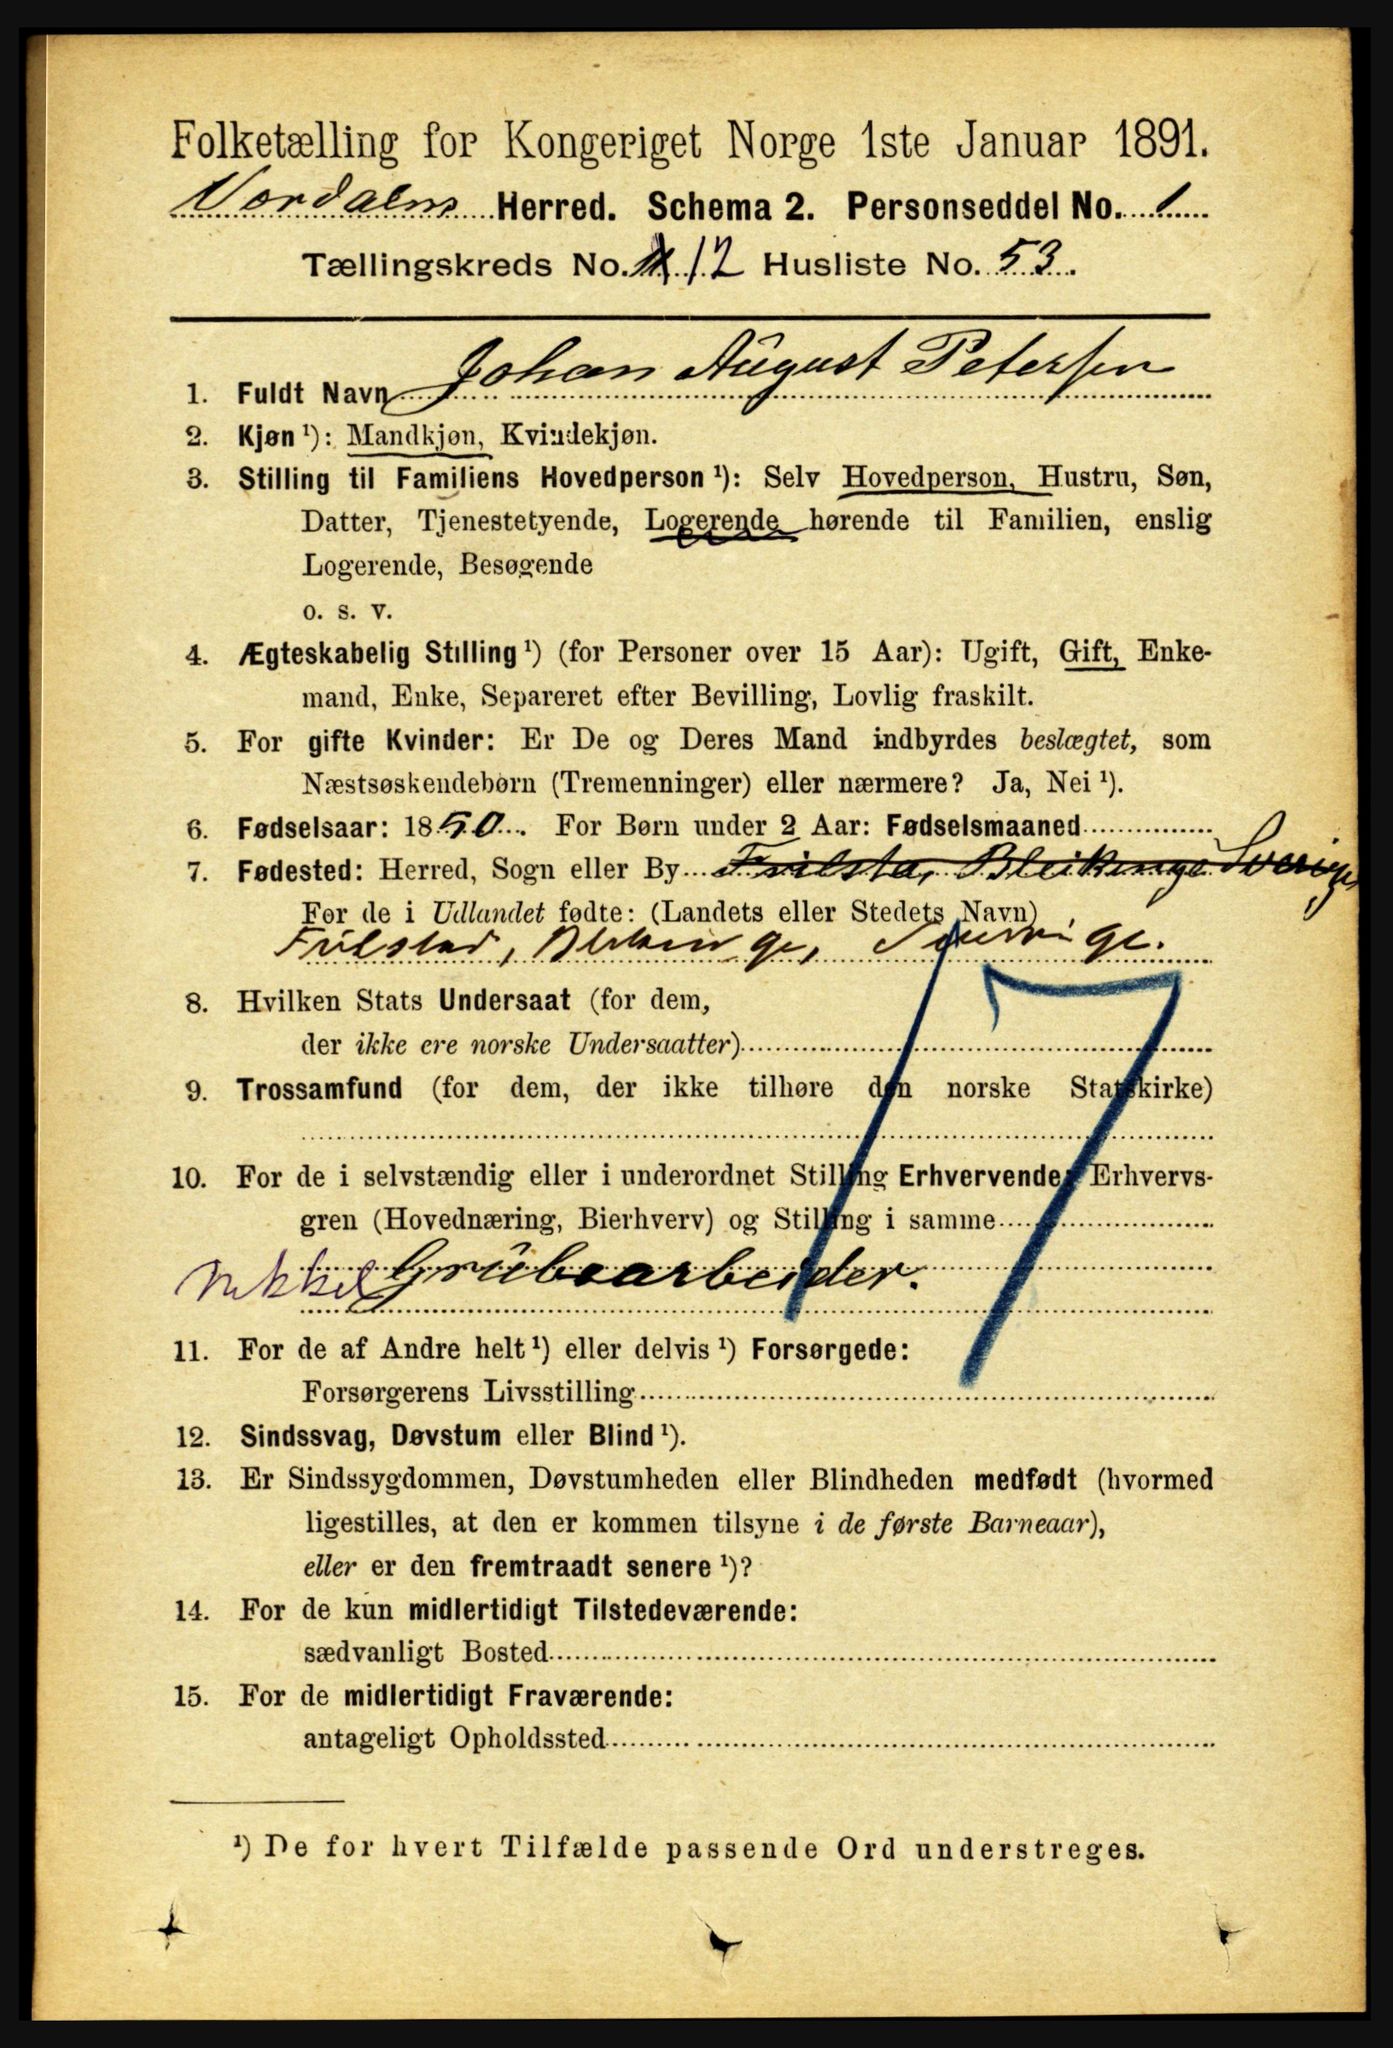 Folketælling for Kongeriget Norge 1ste Januar 1891.
Herred. Schema 2. Personseddel No. 1
Tællingskreds No. 12 Husliste No. 53.
1. Fuldt Navn Johan August Petersen
2. Kjøn ¹): Mandkjøn, Kvindekjøn.
3. Stilling til Familiens Hovedperson ¹): Selv Hovedperson, Hustru, Søn,
Datter, Tjenestetyende, Logerende hørende til Familien, enslig
Logerende, Besøgende
o. s. v.
4. Ægteskabelig Stilling ¹) (for Personer over 15 Aar): Ugift, Gift, Enke-
mand, Enke, Separeret efter Bevilling, Lovlig fraskilt.
5. For gifte Kvinder: Er De og Deres Mand indbyrdes beslægtet, som
Næstsøskendebørn (Tremenninger) eller nærmere? Ja, Nei ¹).
6. Fødselsaar: 1850. For Børn under 2 Aar: Fødselsmaaned
7. Fødested: Herred, Sogn eller By Bleikenge Sverige
For de i Udlandet fødte: (Landets eller Stedets Navn)
Sverrige.
8. Hvilken Stats Undersaat (for dem,
der ikke ere norske Undersaatter)
9. Trossamfund (for dem, der ikke tilhøre den norske Statskirke)
10. For de i selvstændig eller i underordnet Stilling Erhvervende: Erhvervs-
gren (Hovednæring, Bierhverv) og Stilling i samme
Nikkel Grübearbeider.
17
11. For de af Andre helt ¹) eller delvis ¹) Forsørgede:
Forsørgerens Livsstilling
12. Sindssvag, Døvstum eller Blind ¹).
13. Er Sindssygdommen, Døvstumheden eller Blindheden medfødt (hvormed
ligestilles, at den er kommen tilsyne i de første Barneaar),
eller er den fremtraadt senere ¹)?
14. For de kun midlertidigt Tilstedeværende:
sædvanligt Bosted
15. For de midlertidigt Fraværende:
antageligt Opholdssted
¹) De for hvert Tilfælde passende Ord understreges.